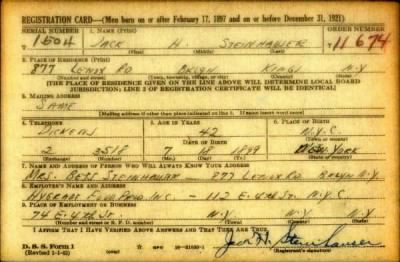 REGISTRATION CARD—(Men born on or after February 17, 1897 and on or before December 31, 1921)
SERIAL NUMBER 1. NAME (Print) ORDER NUMBER
1504 JACK H STEINHAUER 11674
(First) (Middle) (Last)
2. PLACE OF RESIDENCE (Print)
877 LENOX RD BKLYN KINGS N.Y
(Number and street) (Town, township, village, or city) (County) (State)
[THE PLACE OF RESIDENCE GIVEN ON THE LINE ABOVE WILL DETERMINE LOCAL BOARD
JURISDICTION; LINE 2 OF REGISTRATION CERTIFICATE WILL BE IDENTICAL]
3. MAILING ADDRESS
SAME
[Mailing address if other than place indicated on line 2. If same insert word same]
4. TELEPHONE 5. AGE IN YEARS 6. PLACE OF BIRTH
DICKENS 42 N.Y.C.
DATE OF BIRTH (Town or county)
2 2518 7 18 1899 NEW YORK
(Exchange) (Number) (Mo.) (Day) (Yr.) (State or country)
7. NAME AND ADDRESS OF PERSON WHO WILL ALWAYS KNOW YOUR ADDRESS
MRS. BESS STEINHAUER 877 LENOX RD. BKLYN N.Y
8. EMPLOYER'S NAME AND ADDRESS
INC — 112 E. 4TH ST. N.Y.C
9. PLACE OF EMPLOYMENT OR BUSINESS
74 E. 4TH ST. N.Y. N.Y.
(Number and street or R. F. D. number) (Town) (County) (State)
I AFFIRM THAT I HAVE VERIFIED ABOVE ANSWERS AND THAT THEY ARE TRUE.
D. S. S. Form 1
(Revised 1-1-42) GPO 16—21630-1
Jack H. Steinhauer
(Registrant's signature)